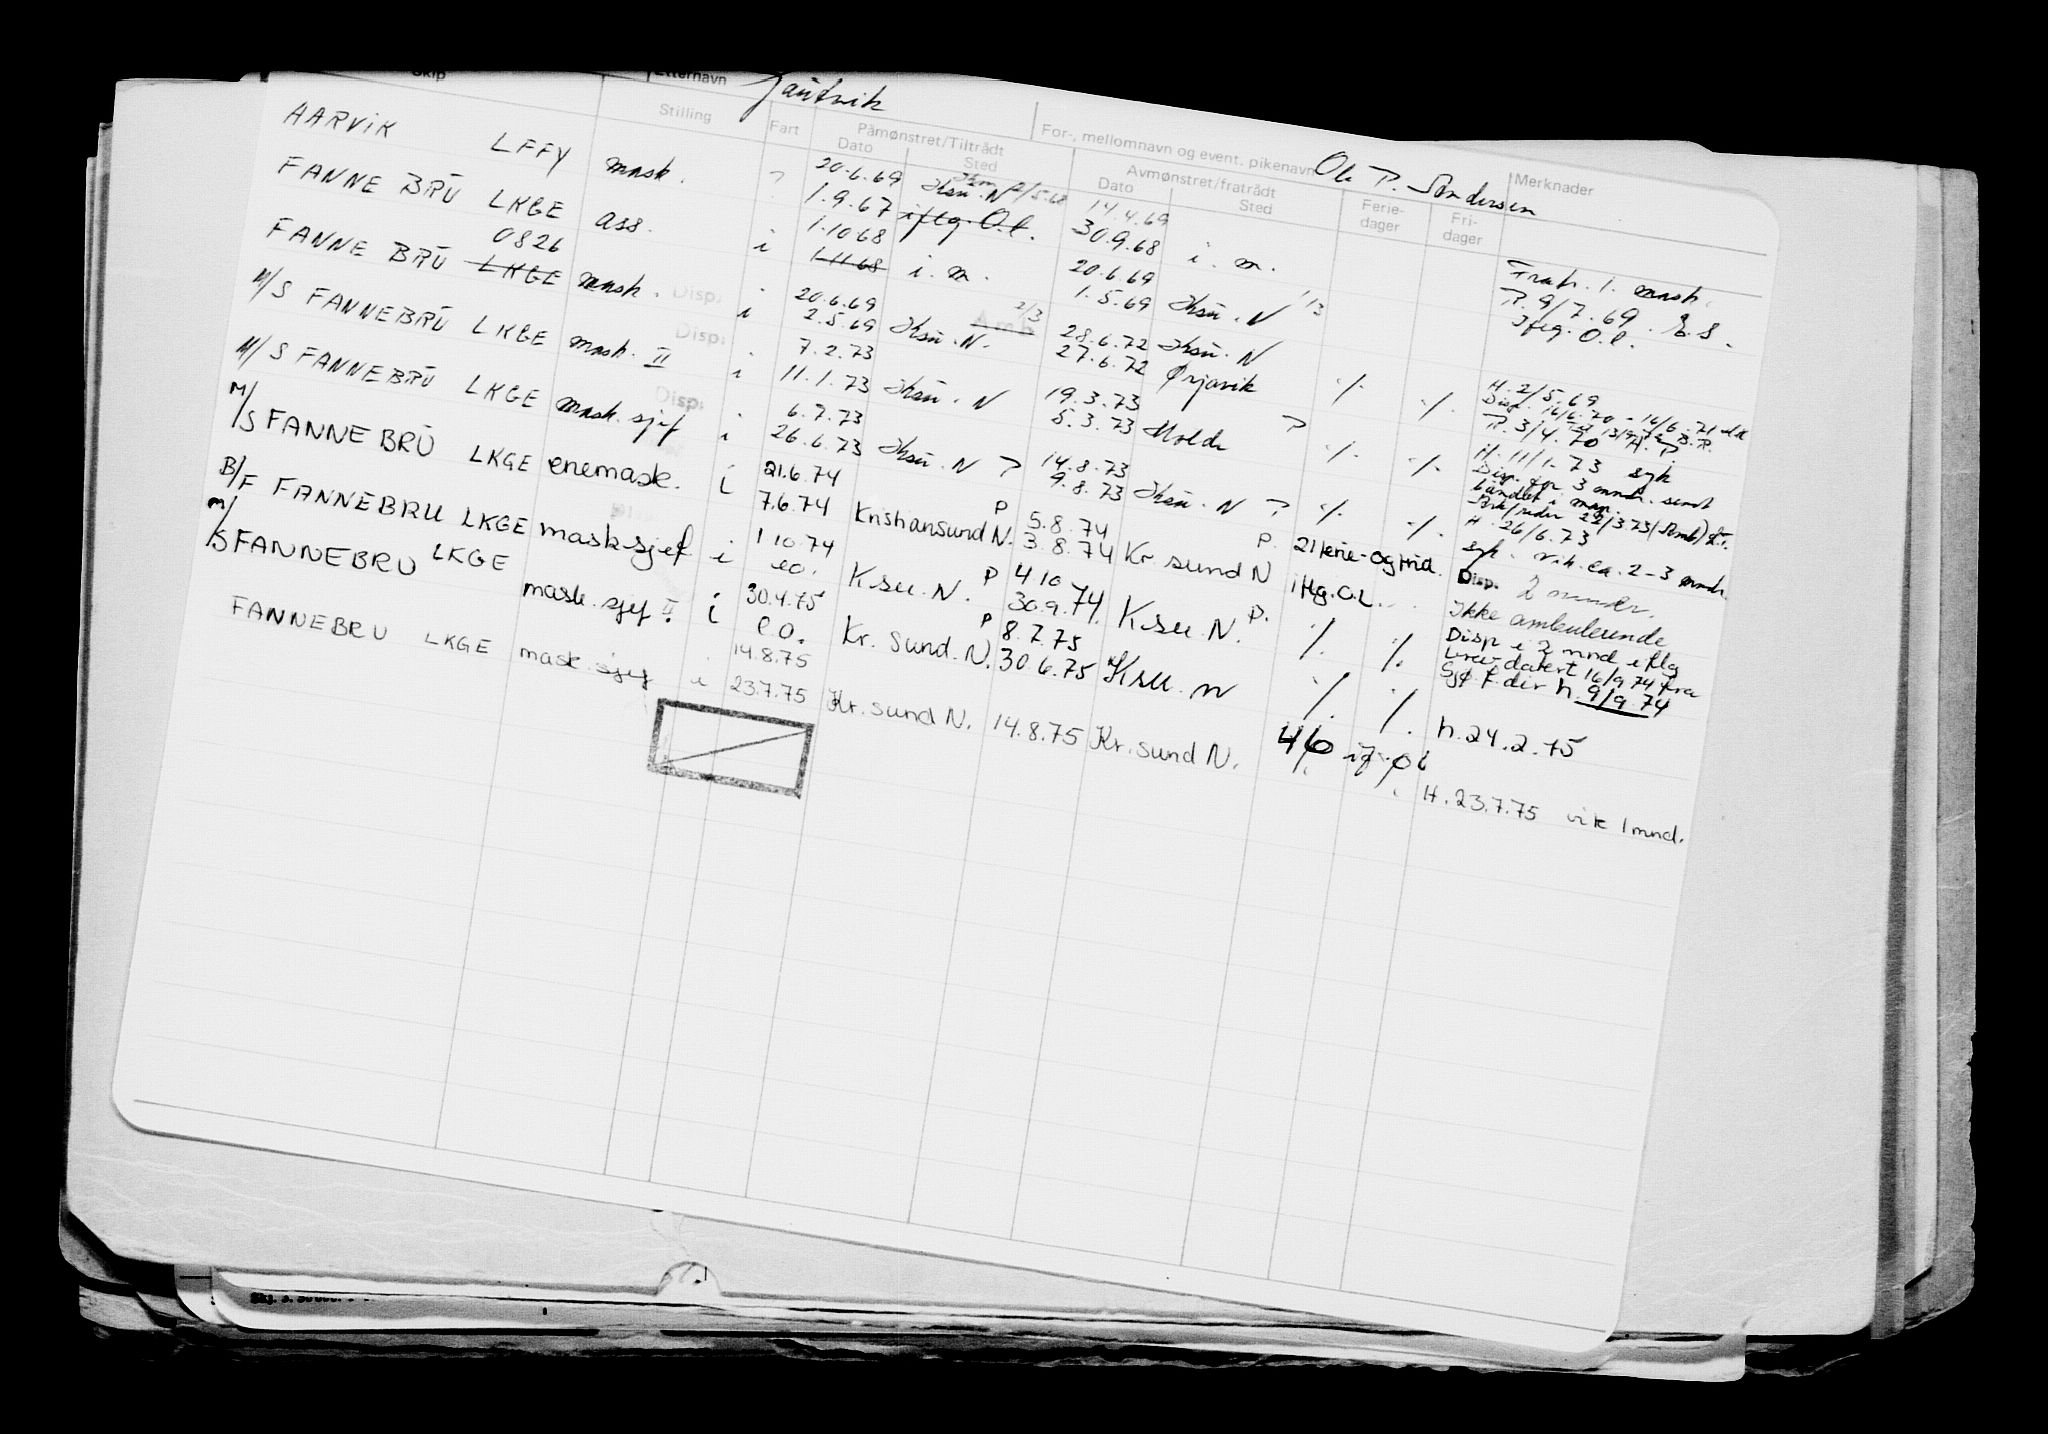 Skip Etternavn
For-, mellomnavn og event. pikenavn Ole P. Sandersen
Stilling Fart Påmønstret/Tiltrådt Dato Sted Avmønstret/fratrådt Dato Sted Ferie-dager Fri-dager Merknader
AARVIK LFFY mask. ? 20.6.69 Ksu. N 2/5.68 14.4.69
FANNE BRU LKGE ass. 1.9.67 iflg. O.l. 30.9.68 i. m. Fratr. 1. mask.
P. 9/7.69.
Iflg. O.l.
0826
FANNE BRU LKGE mask. Disp. i 1.10.68 1.11.68 i. m. 20.6.69 1.5.69 Ksu. N
M/S FANNEBRU LKGE mask. II Disp. i 20.6.69 2.5.69 Ksu. N. 2/3 28.6.72 27.6.72 Ksu. N Ørjavik ./. ./. H. 2/5.69
Disp. 16/6.70 - 16/6.71
P. 3/4.70
M/S FANNEBRU LKGE mask. sjef Disp. i 7.2.73 11.1.73 Ksu. N 19.3.73 5.3.73 Molde ? ./. ./. H. 11/1.73 syk
Disp. for 3 mndr. samt
M/S FANNEBRU LKGE enemask. i 6.7.73 26.6.73 Ksu. N ? 14.8.73 9.8.73 Ksu. N ? ./. ./. H. 26/6.73
syk. vik. ca. 2-3 mndr.
B/F FANNEBRU LKGE masksjef i 21.6.74 7.6.74 Kristiansund N. P 5.8.74 3.8.74 Kr sund N P. 21 ferie-og frid. iflg. O.L. Disp. 2 mndr.
Ikke ambulerende
M/S FANNEBRU LKGE mask. sjef II i 1 10.74 e.o. Ksu. N. P 4 10 30.9.74. Ksu. N. P. ./. ./. Disp i 2 mnd iflg
brev datert 16/9 74 fra
Sjø.f.dir h. 9/9.74
30.4.75 e.o. Kr. Sund. N. P 8.7.75 30.6.75 Ksu. N ./. ./. h. 24.2.75
46
FANNEBRU LKGE mask. sjef i 14.8.75 23.7.75 Kr. sund N. 14.8.75 Kr. sund N. H. 23.7.75 vik 1 mnd.